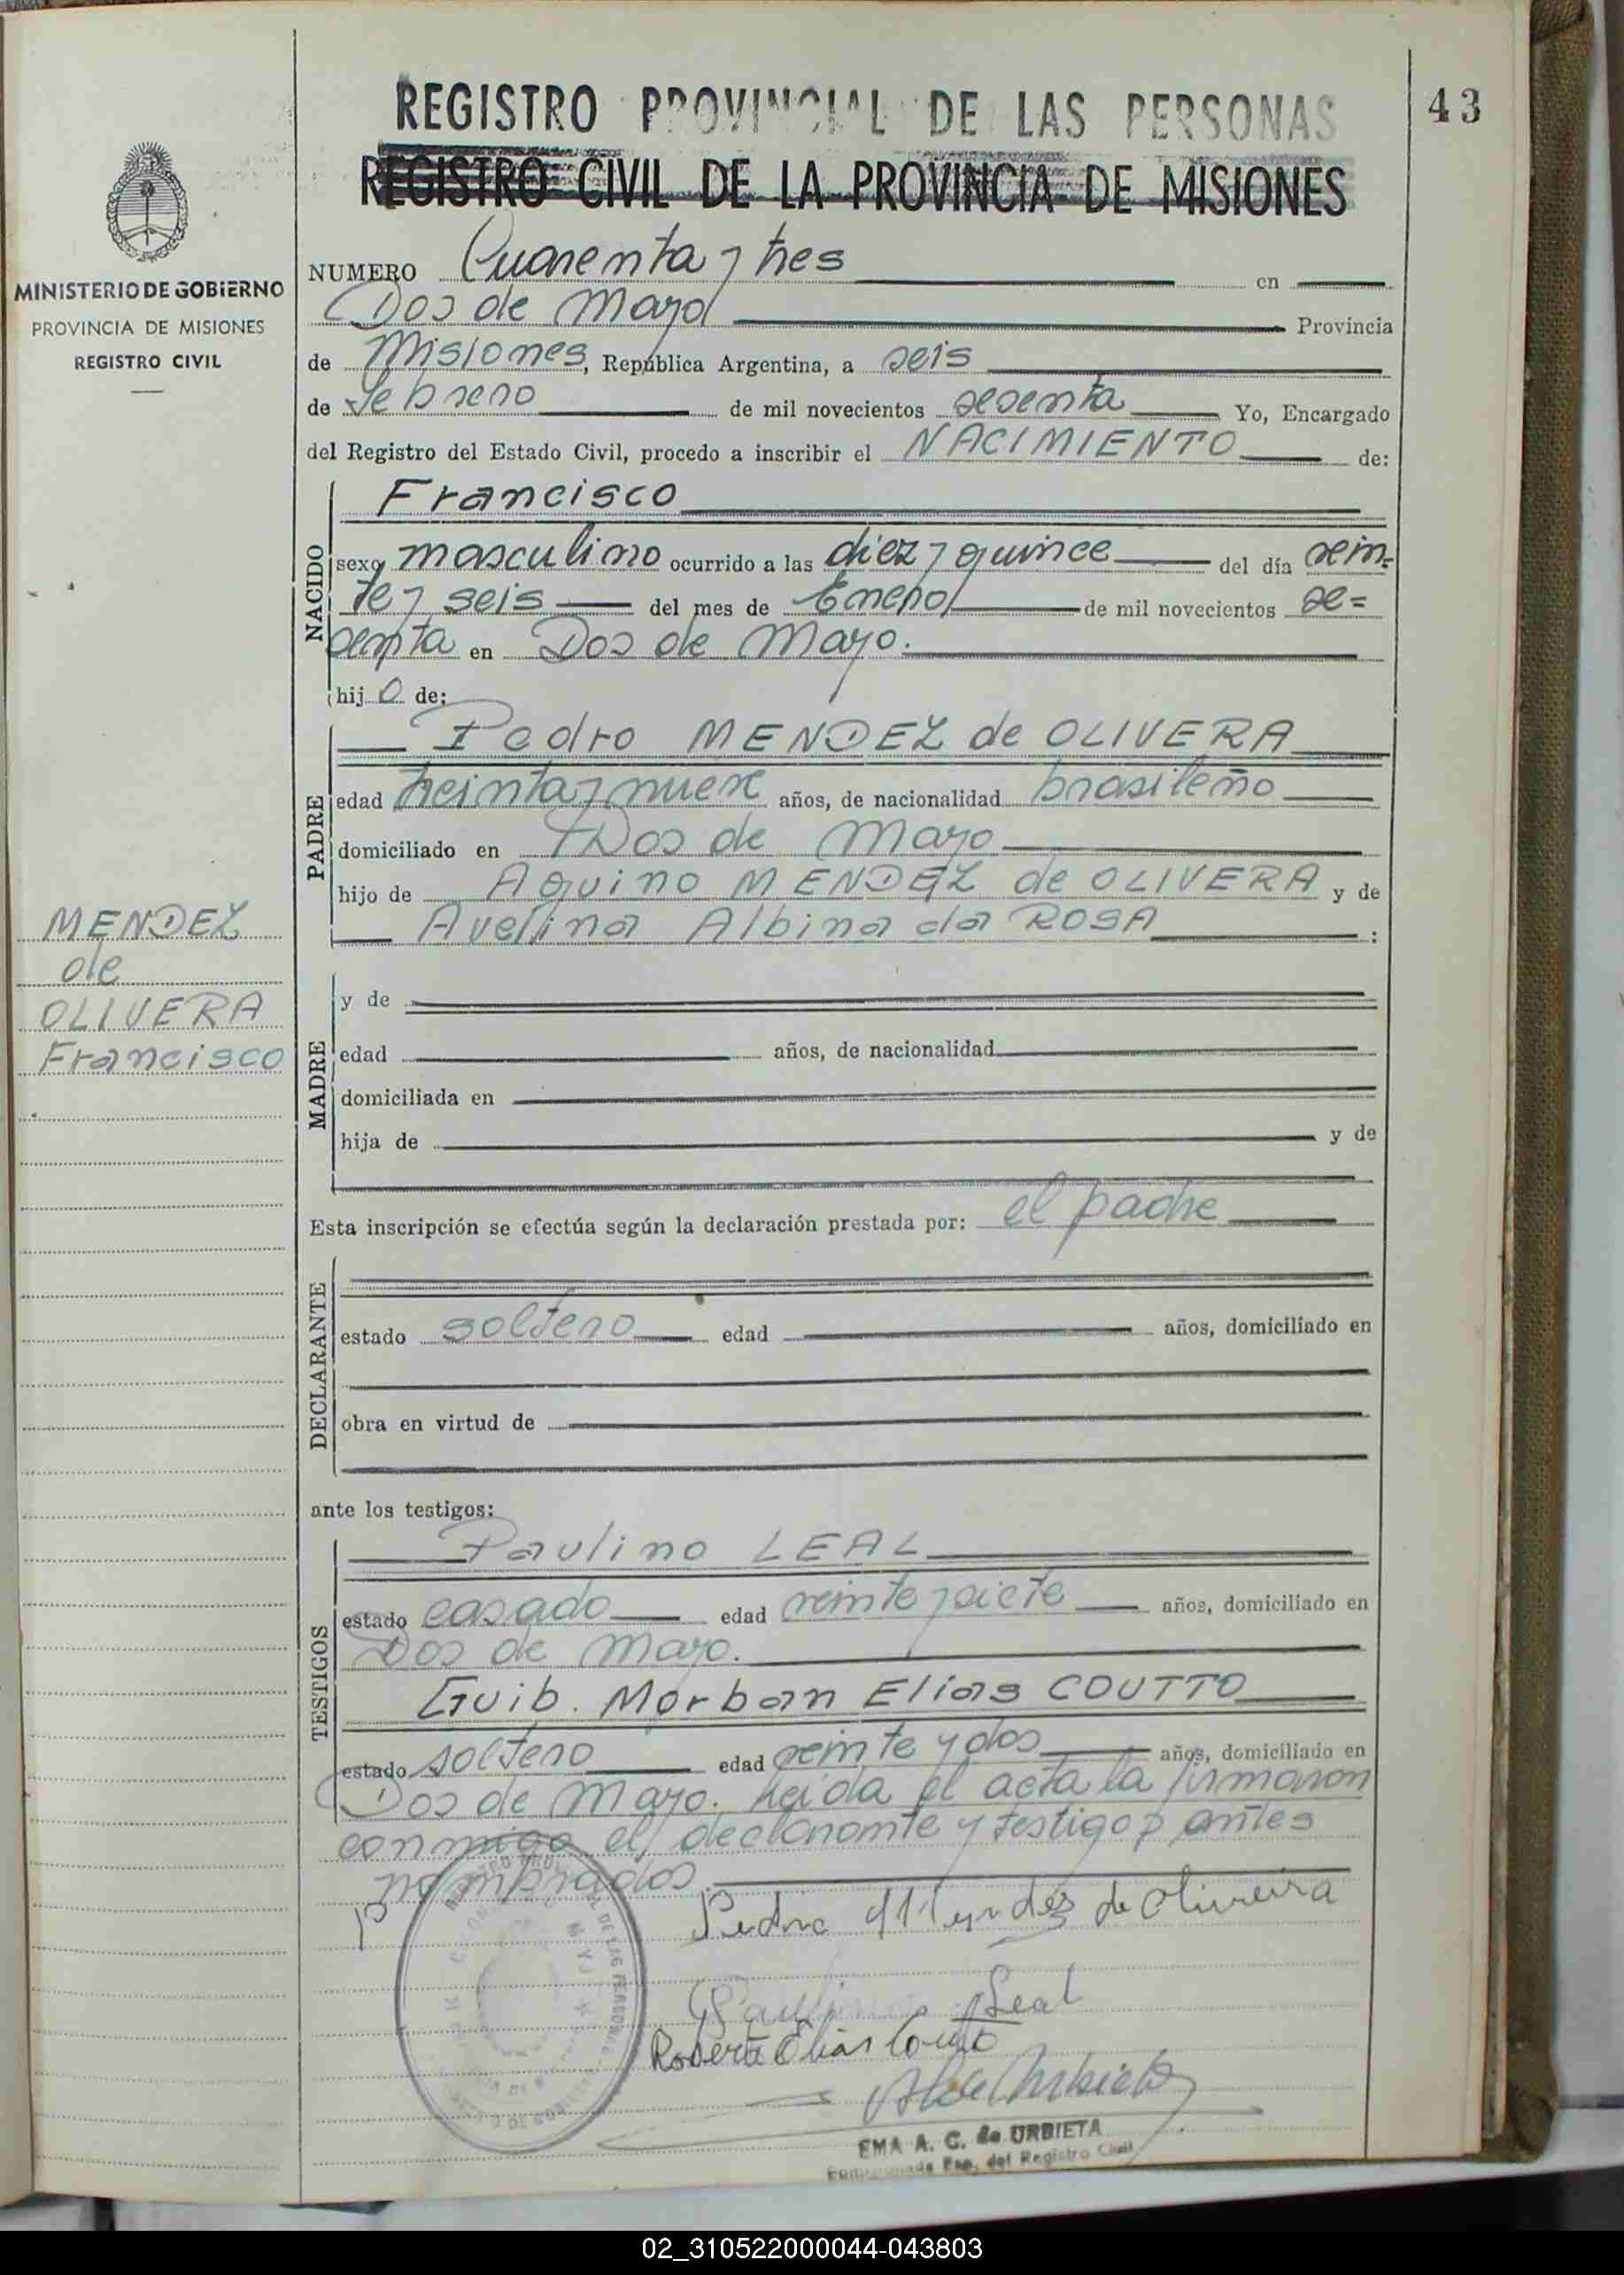 REGISTRO PROVINCIAL DE LAS PERSONAS
43
REGISTRO CIVIL DE LA PROVINCIA DE MISIONES
MINISTERIO DE GOBIERNO
PROVINCIA DE MISIONES
REGISTRO CIVIL
NUMERO Cuarenta y tres en
Dos de Mayo Provincia
de Misiones, República Argentina, a seis
de Febrero de mil novecientos sesenta Yo, Encargado
del Registro del Estado Civil, procedo a inscribir el NACIMIENTO de:
NACIDO
Francisco
sexo masculino ocurrido a las diez y quince del día vein-
te y seis del mes de Enero de mil novecientos se=
senta en Dos de Mayo.
hijo de:
PADRE
Pedro MENDEZ de OLIVERA
edad treinta y nueve años, de nacionalidad brasileño
domiciliado en Dos de Mayo
hijo de Aquino MENDEZ de OLIVERA y de
Avelina Albina da ROSA :
MENDEZ
de
OLIVERA
Francisco
MADRE
y de
edad años, de nacionalidad
domiciliada en
hija de y de
Esta inscripción se efectúa según la declaración prestada por: el padre
DECLARANTE
estado soltero edad años, domiciliado en
obra en virtud de
ante los testigos:
TESTIGOS
Paulino LEAL
estado casado edad veinte y siete años, domiciliado en
Dos de Mayo.
Guib. Morban Elias COUTTO
estado soltero edad veinte y dos años, domiciliado en
Dos de Mayo. Leida el acta la firmaron
conmigo el declarante y testigos antes
nombrados
Pedro Mendes de Oliveira
Paulino Leal
Elias Coutto
EMA A. C. de URBIETA
Esp. del Registro Civil
02_310522000044-043803